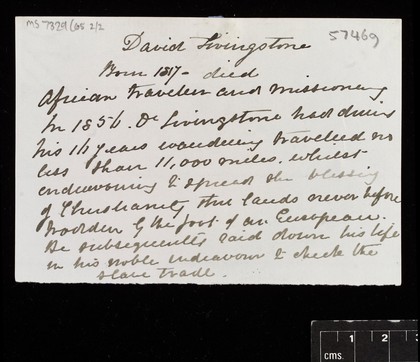 MS 7829/68 2/2
57469
David Livingstone
Born 1817 - died
African traveller and missionary
In 1856. Dr Livingstone had during
his 16 years wandering travelled no
less than 11,000 miles, whilst
endeavouring to spread the blessing
of Christianity thro' lands never before
trodden by the foot of an European.
He subsequently laid down his life
in his noble endeavour to check the
slave trade.
1 2
cms